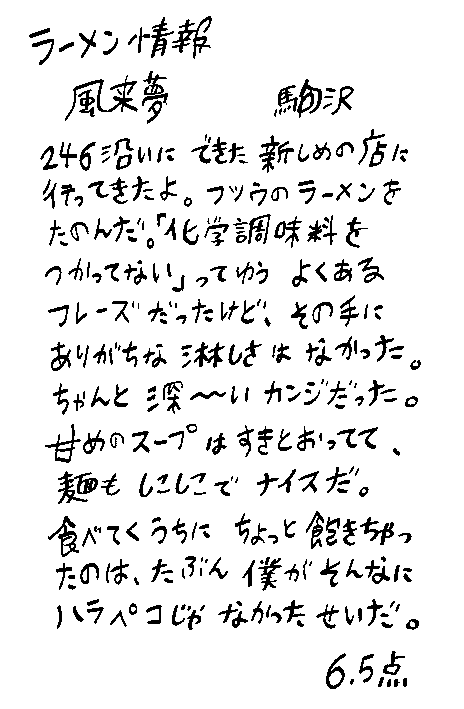 ラーメン情報
風来夢 駒沢
246沿いに できた 新しめの店に
行ってきたよ。フツウのラーメンを
たのんだ。「化学調味料を
つかってない」ってゆう よくある
フレーズだったけど、その手に
ありがちな淋しさは なかった。
ちゃんと 深〜い カンジだった。
甘めのスープはすきとおってて、
麺も しこしこで ナイスだ。
食べてくうちに ちょっと飽きちゃっ
たのは、たぶん 僕が そんなに
ハラペコじゃ なかった せいだ。
6.5点